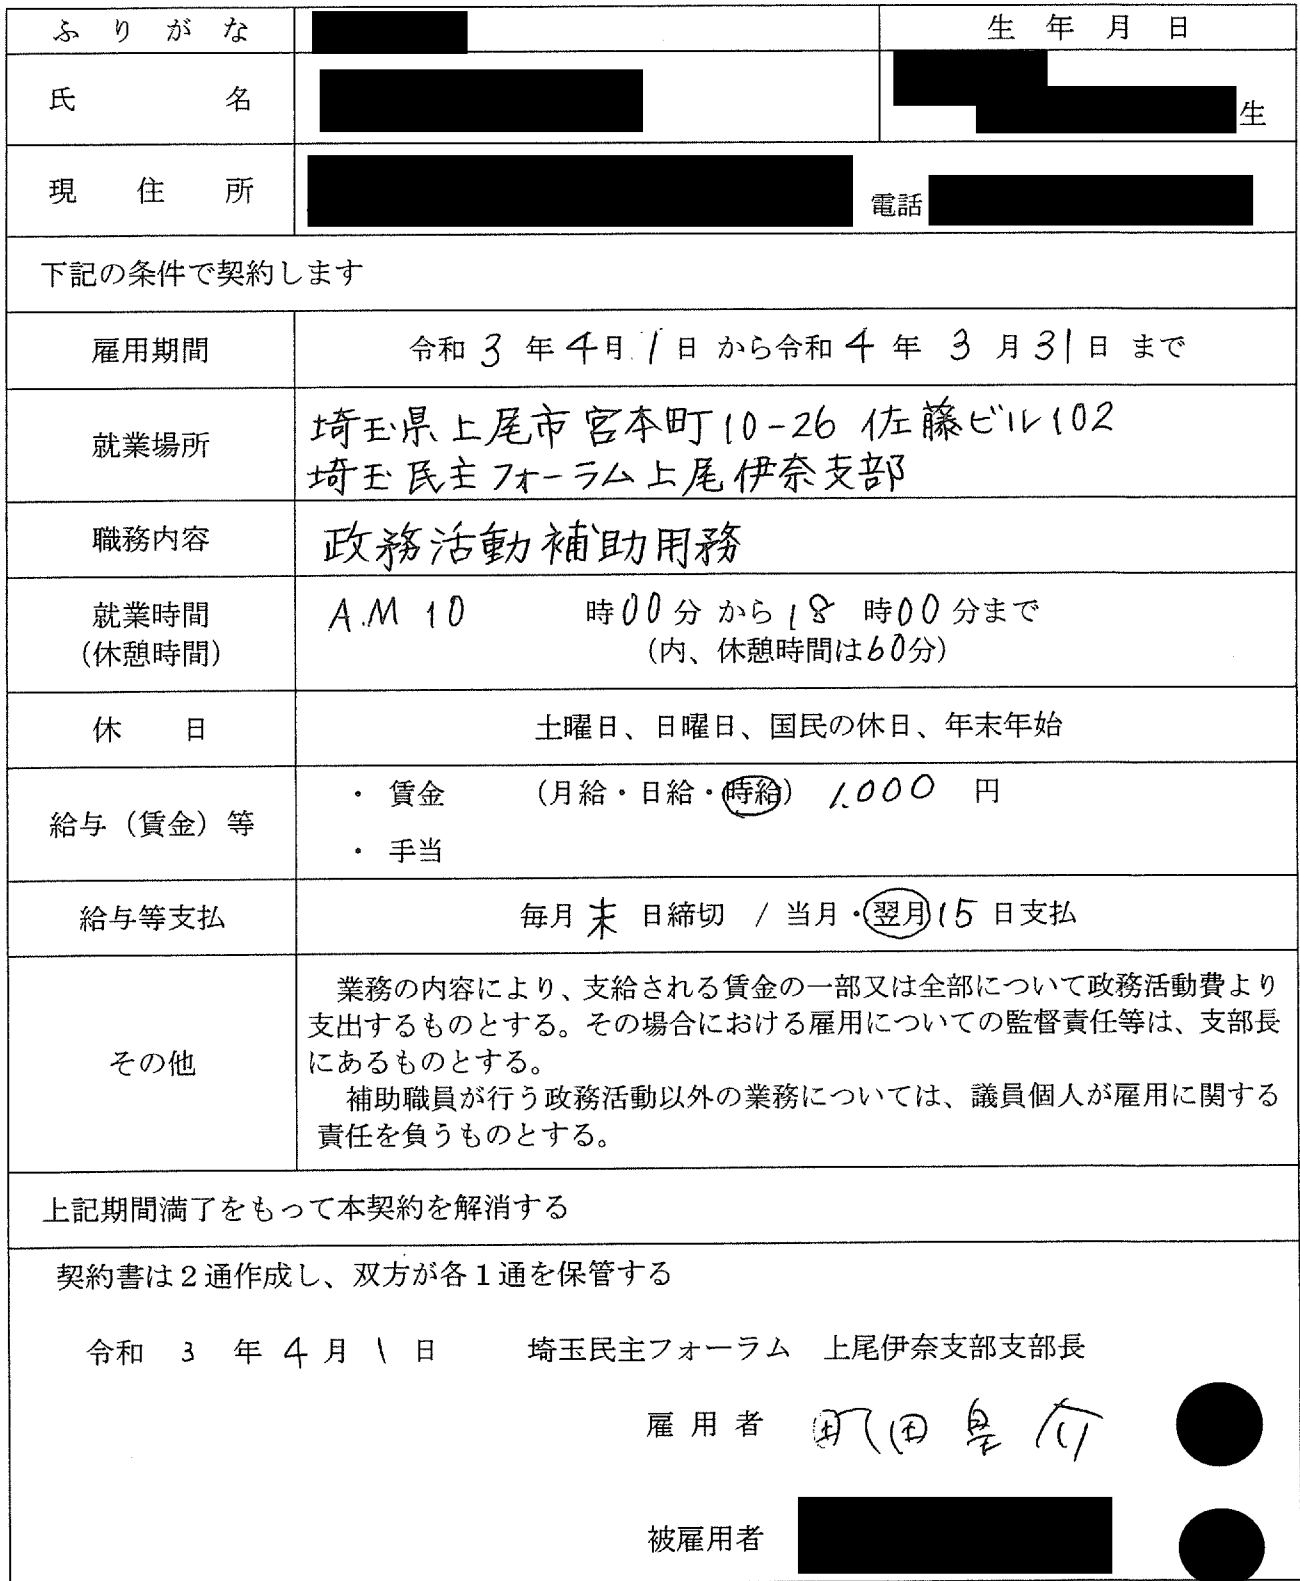 ふりがな
生年月日
氏名
生
現住所
電話
下記の条件で契約します
雇用期間 令和 3 年 4月 1 日 から令和 4 年 3 月 31 日 まで
就業場所
埼玉県上尾市宮本町10-26 佐藤ビル102
埼玉民主フォーラム上尾伊奈支部
職務内容 政務活動補助用務
就業時間 A.M 10 時00分 から 18 時00分まで
(休憩時間) (内、休憩時間は60分)
休日 土曜日、日曜日、国民の休日、年末年始
給与(賃金)等
・ 賃金 (月給・日給・時給) 1.000 円
・ 手当
給与等支払 毎月 末 日締切 / 当月・翌月 15 日支払
その他
業務の内容により、支給される賃金の一部又は全部について政務活動費より
支出するものとする。その場合における雇用についての監督責任等は、支部長
にあるものとする。
補助職員が行う政務活動以外の業務については、議員個人が雇用に関する
責任を負うものとする。
上記期間満了をもって本契約を解消する
契約書は2通作成し、双方が各1通を保管する
令和 3 年 4 月 1 日 埼玉民主フォーラム 上尾伊奈支部支部長
雇用者 町田皇介
被雇用者